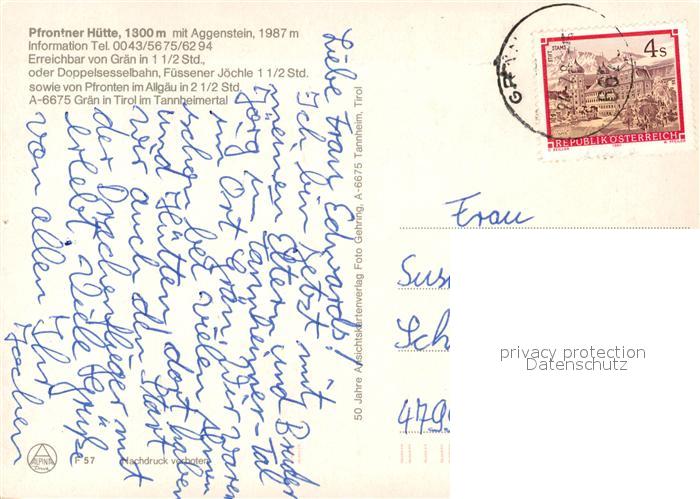 Pfrontner Hütte, 1300 m mit Aggenstein, 1987 m
Information Tel. 0043/5675/62 94
Erreichbar von Grän in 1 1/2 Std.,
oder Doppelsesselbahn, Füssener Jöchle 1 1/2 Std.
sowie von Pfronten im Allgäu in 2 1/2 Std.
A-6675 Grän in Tirol im Tannheimertal
Liebe Frau Edwards!
Ich bin jetzt mit
meinen Eltern und Bruder
Jörg im Tannheimer-Tal
im Ort Grän. Wir waren
schon bei vielen Almen
und Hütten, dort haben
wir auch den Start
der Drachenflieger mit
erlebt. Viele Grüße
von allen Ihr
Jochen
50 Jahre Ansichtskartenverlag Foto Gehring, A-6675 Tannheim, Tirol
STIFT STAMS
4 S
REPUBLIK ÖSTERREICH
Frau
Sus
Sch
479
privacy protection
Datenschutz
ALPINA
Druck
F 57
Nachdruck verboten